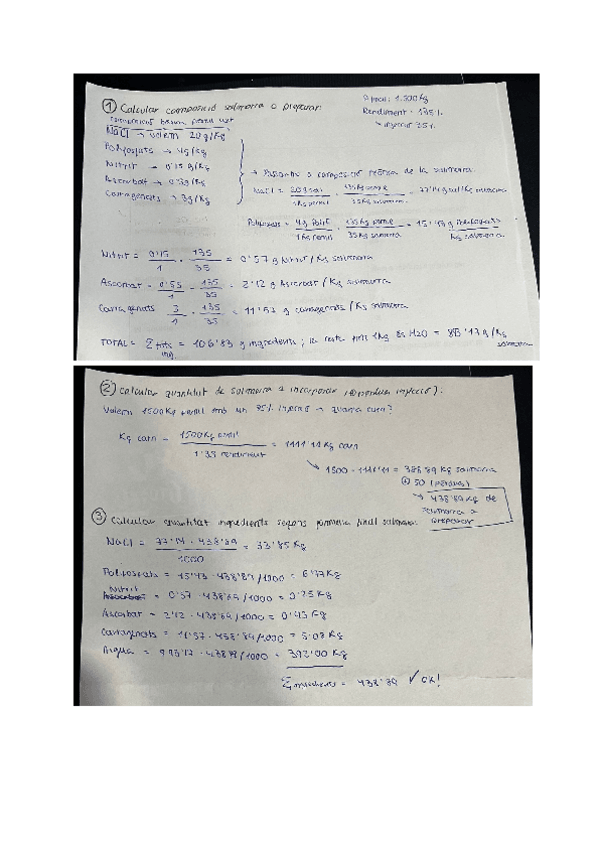 ① Calcular composició salmorra a preparar:
Pernil: 1.500 Kg
Rendiment = 135%
↳ injecció 35%
NaCl → volem 20 g/Kg
Polifosfats → 4 g/Kg
Nitrit → 0'15 g/Kg
Ascorbat → 0'55 g/Kg
Carragenats → 3 g/Kg
→ Passem a composició teòrica de la salmorra.
NaCl = 20 g sal / 1 Kg pernil · 135 Kg pernil / 35 Kg salmorra = 77'14 g sal / Kg salmorra
Polifosfats = 4 g Polif. / 1 Kg pernil · 135 Kg pernil / 35 Kg salmorra = 15'43 g polifosfats / Kg salmorra
Nitrit = 0'15 / 1 · 135 / 35 = 0'57 g Nitrit / Kg salmorra
Ascorbat = 0'55 / 1 · 135 / 35 = 2'12 g Ascorbat / Kg salmorra
Carragenats 3 / 1 · 135 / 35 = 11'57 g carragenats / Kg salmorra
TOTAL = Σ tots ing. = 106'83 g ingredients; la resta fins 1 Kg és H2O = 893'17 g / Kg salmorra
② Calcular quantitat de salmorra a incorporar
Volem 1500 Kg pernil amb un 35% injecció → quanta carn?
Kg carn = 1500 Kg pernil / 1'35 rendiment = 1111'11 Kg carn
↳ 1500 - 1111'11 = 388'89 Kg salmorra
⊕ 50 (pèrdues)
↳ 438'89 Kg de salmorra a preparar
③ Calcular quantitat ingredients segons fórmula final salmorra.
NaCl = 77'14 · 438'89 / 1000 = 33'85 Kg
Polifosfats = 15'43 · 438'89 / 1000 = 6'77 Kg
Nitrit = 0'57 · 438'89 / 1000 = 0'25 Kg
Ascorbat = 2'12 · 438'89 / 1000 = 0'93 Kg
Carragenats = 11'57 · 438'89 / 1000 = 5'08 Kg
Aigua = 893'17 · 438'89 / 1000 = 392'00 Kg
Σ ingredients = 438'89 ✓ OK!